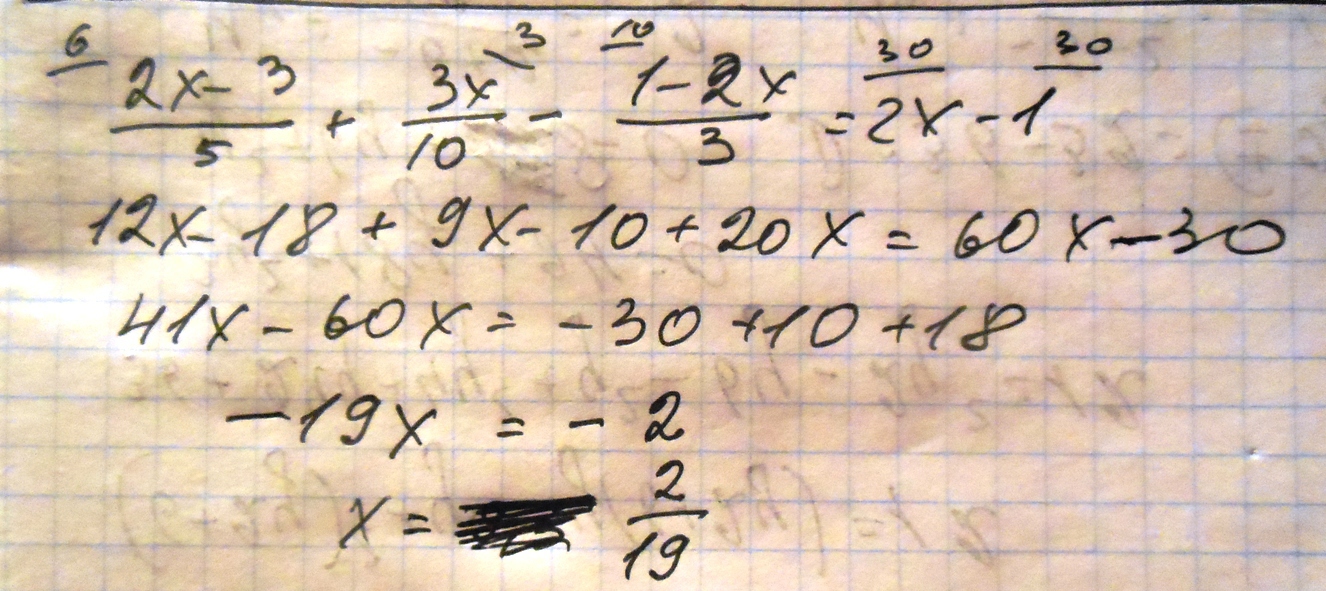 6 (2x-3)/5 + 3x/10 \3 - 10 (1-2x)/3 = 30 2x - 30 1
12x-18+9x-10+20x=60x-30
41x-60x=-30+10+18
-19x=-2
x= 2/19